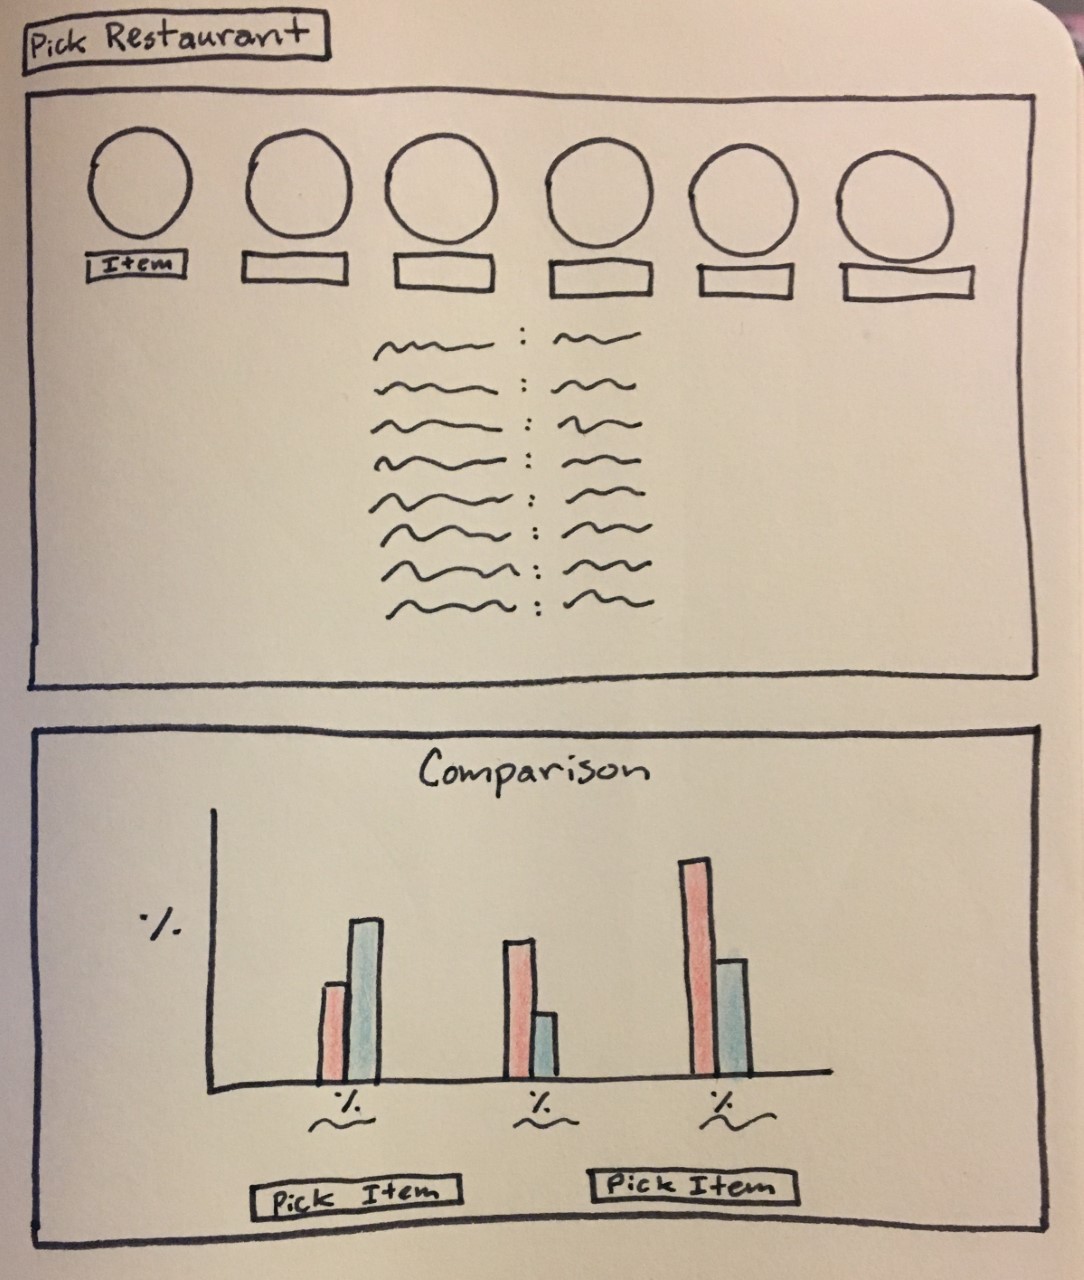 Pick Restaurant
Item
:
:
:
:
:
:
:
:
Comparison
%
% % %
Pick Item Pick Item